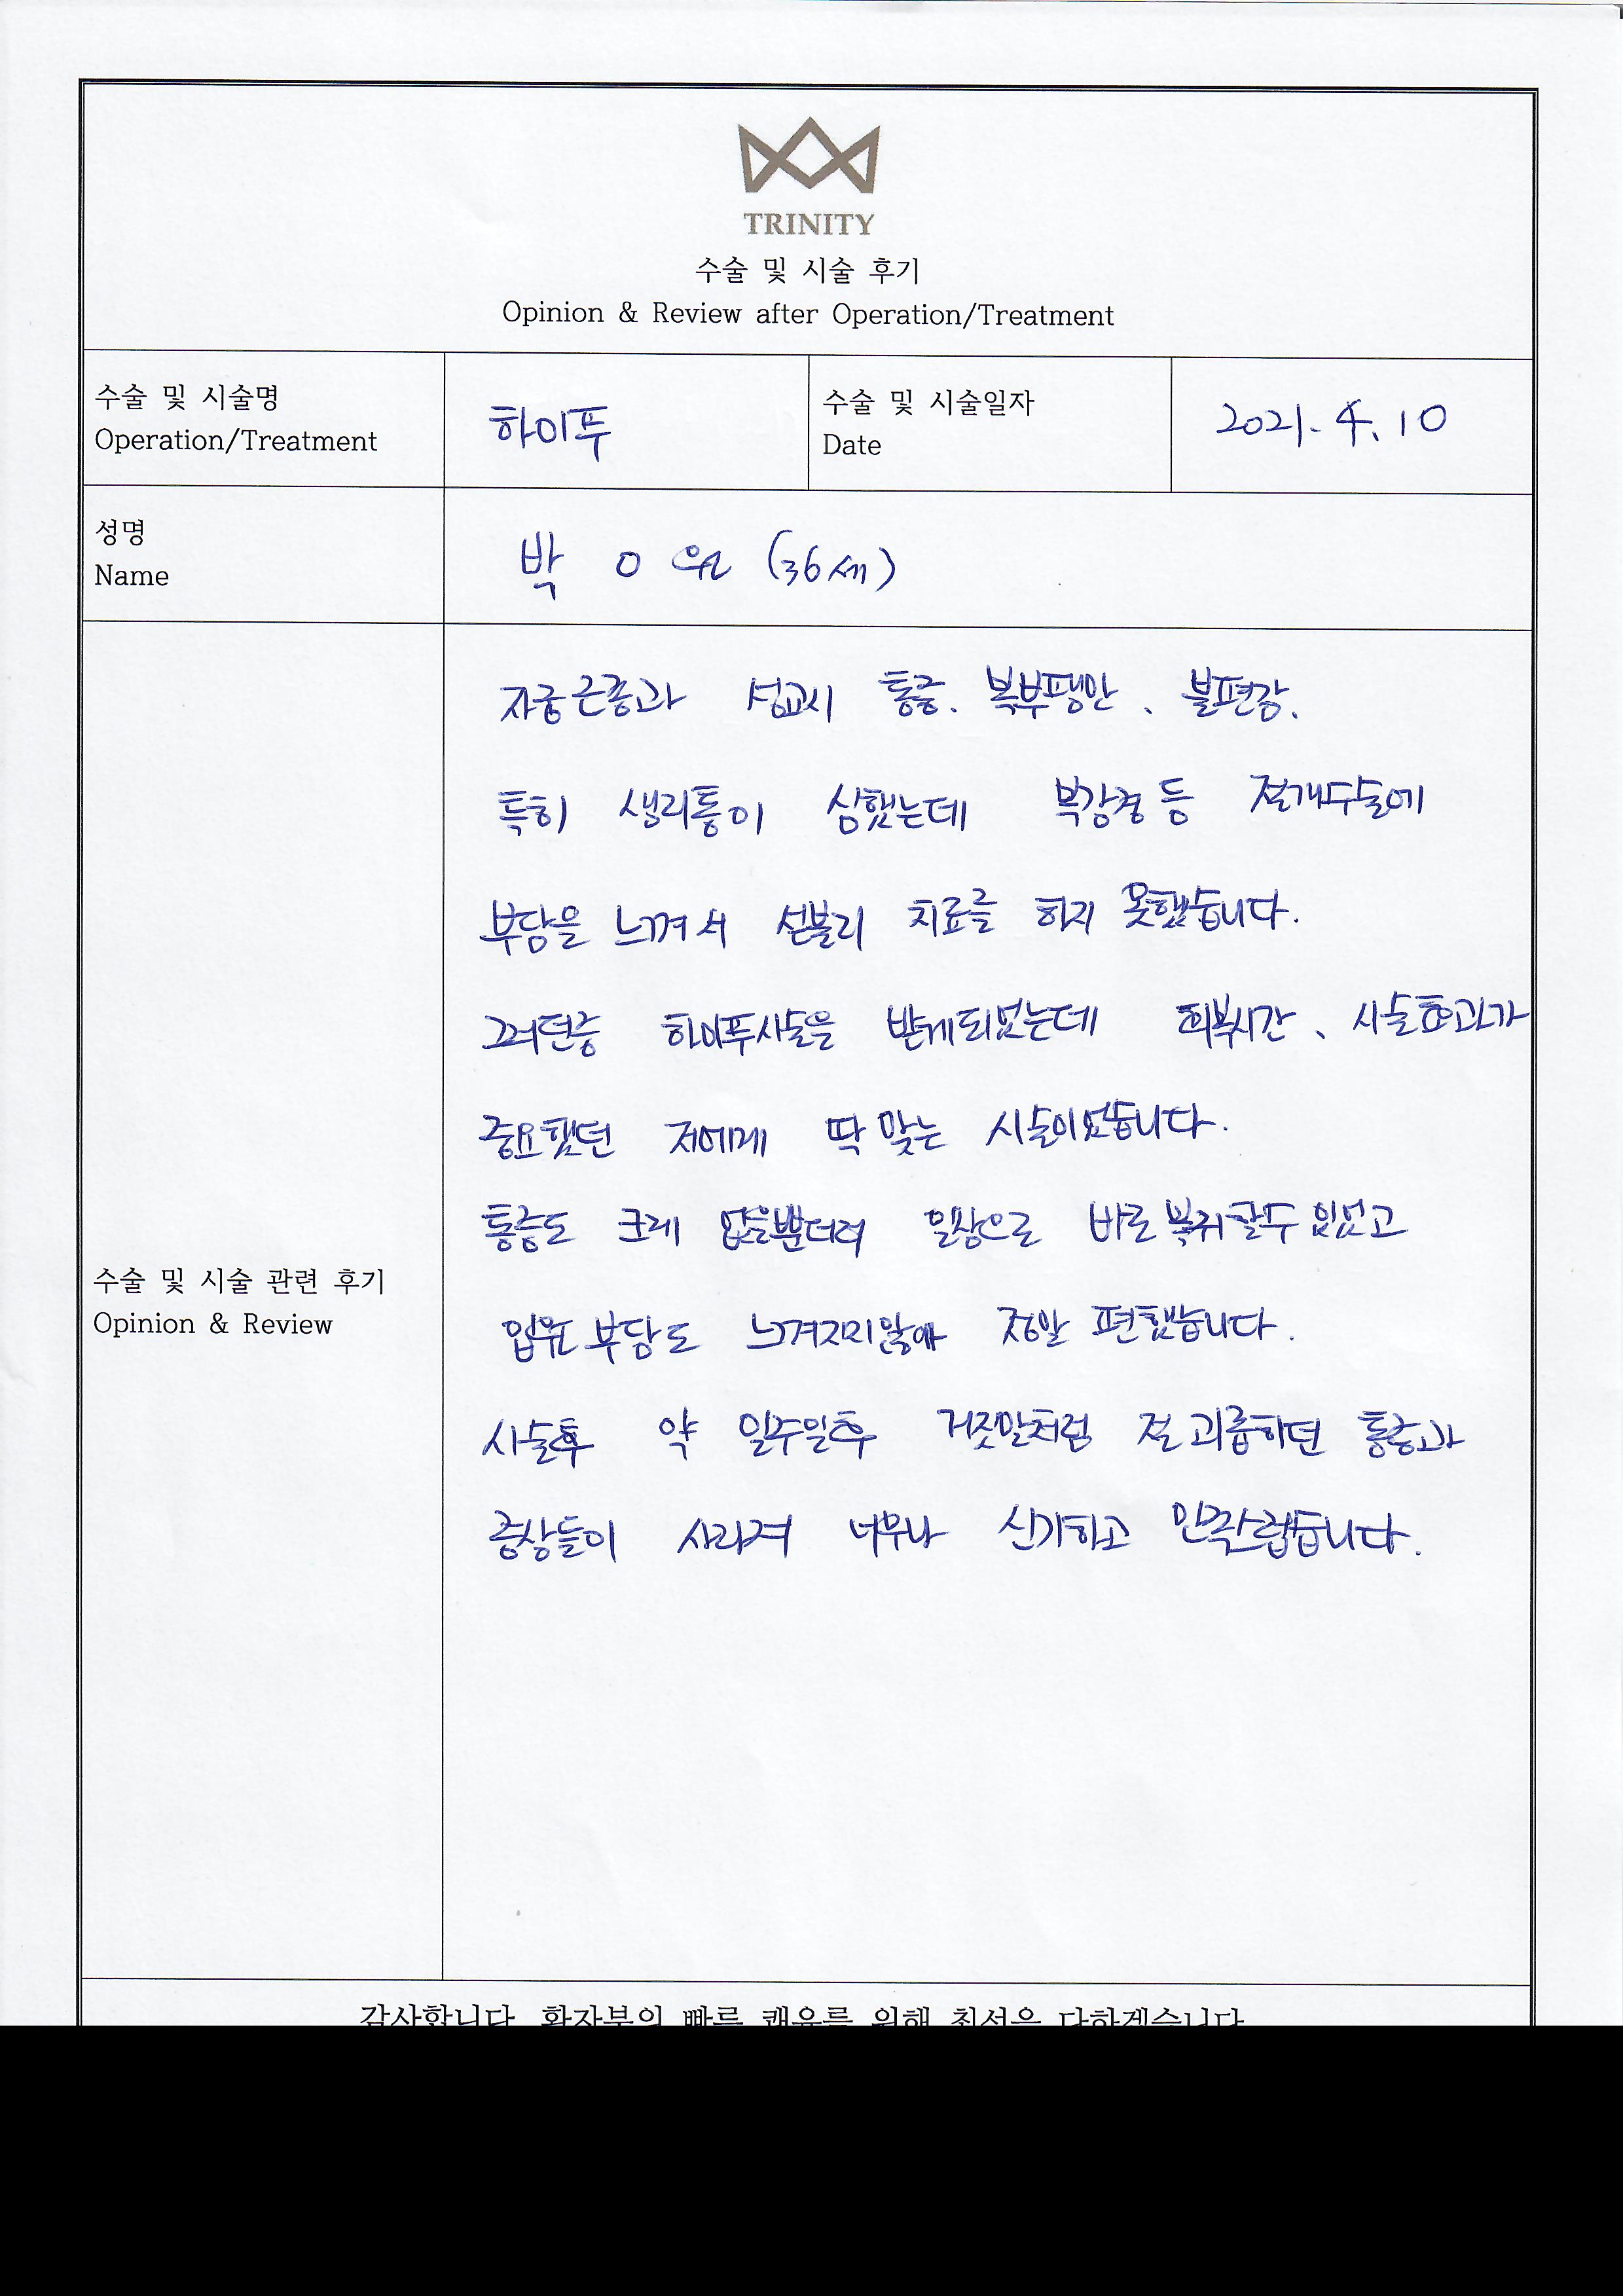 TRINITY
수술 및 시술 후기
Opinion & Review after Operation/Treatment
수술 및 시술명
Operation/Treatment
하이푸
수술 및 시술일자
Date
2021. 4. 10
성명
Name
박 O 원 (36세)
수술 및 시술 관련 후기
Opinion & Review
자궁근종과 성교시 통증. 복부팽만、불편감.
특히 생리통이 심했는데 복강경 등 절개수술에
부담을 느껴서 섣불리 치료를 하지 못했습니다.
그러던중 하이푸시술을 받게되었는데 회복시간、시술효과가
중요했던 저에게 딱 맞는 시술이였습니다.
통증도 크게 없을뿐더러 일상으로 바로 복귀할수 있었고
입원 부담도 느껴지지않아 정말 편했습니다.
시술후 약 일주일후 거짓말처럼 절 괴롭히던 통증과
증상들이 사라져 너무나 신기하고 만족스럽습니다.
감사합니다. 환자분의 빠른 쾌유를 위해 최선을 다하겠습니다